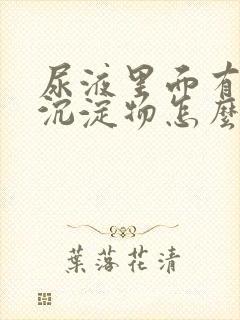 尿液里面有
沉淀物怎麼
葉落花清